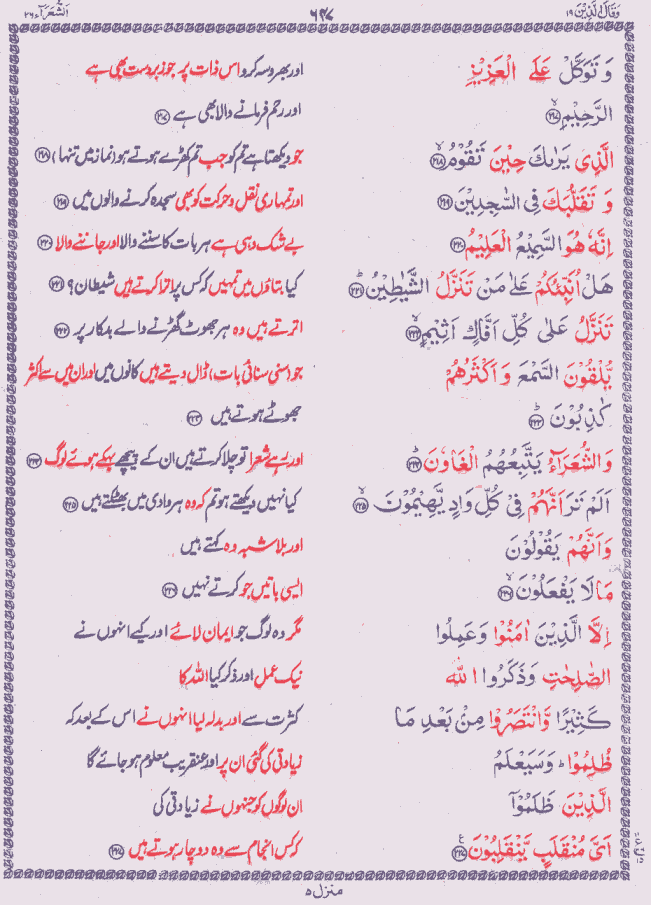 وَقَالَ الَّذِيْنَ ١٩
٦٤٧
اَلشُّعَرَآء ٢٦
وَ تَوَكَّلْ عَلَى الْعَزِيْزِ
اور بھروسہ کرو اس ذات پر جو زبردست بھی ہے
الرَّحِيْمِ ﴿٢١٧﴾
اور رحم فرمانے والا بھی ہے ﴿٢١٧﴾
الَّذِىْ يَرٰىكَ حِيْنَ تَقُوْمُ ﴿٢١٨﴾
جو دیکھتا ہے تم کو جب تم کھڑے ہوتے ہو (نماز میں تنہا) ﴿٢١٨﴾
وَ تَقَلُّبَكَ فِى السّٰجِدِيْنَ ﴿٢١٩﴾
اور تمہاری نقل و حرکت کو بھی سجدہ کرنے والوں میں ﴿٢١٩﴾
اِنَّهٗ هُوَ السَّمِيْعُ الْعَلِيْمُ ﴿٢٢٠﴾
بے شک وہی ہے ہر بات کا سننے والا اور جاننے والا ﴿٢٢٠﴾
هَلْ اُنَبِّئُكُمْ عَلٰى مَنْ تَنَزَّلُ الشَّيٰطِيْنُ ﴿٢٢١﴾
کیا بتاؤں میں تمہیں کہ کس پر اترا کرتے ہیں شیطان؟ ﴿٢٢١﴾
تَنَزَّلُ عَلٰى كُلِّ اَفَّاكٍ اَثِيْمٍ ﴿٢٢٢﴾
اترتے ہیں وہ ہر جھوٹ گھڑنے والے بدکار پر ﴿٢٢٢﴾
يُّلْقُوْنَ السَّمْعَ وَ اَكْثَرُهُمْ
جو (سنی سنائی بات) ڈال دیتے ہیں کانوں میں اور ان میں سے اکثر
كٰذِبُوْنَ ﴿٢٢٣﴾
جھوٹے ہوتے ہیں ﴿٢٢٣﴾
وَالشُّعَرَآءُ يَتَّبِعُهُمُ الْغَاوٗنَ ﴿٢٢٤﴾
اور رہے شعرا تو چلا کرتے ہیں ان کے پیچھے بہکے ہوئے لوگ ﴿٢٢٤﴾
اَلَمْ تَرَ اَنَّهُمْ فِىْ كُلِّ وَادٍ يَّهِيْمُوْنَ ﴿٢٢٥﴾
کیا نہیں دیکھتے ہو تم کہ وہ ہر وادی میں بھٹکتے ہیں ﴿٢٢٥﴾
وَ اَنَّهُمْ يَقُوْلُوْنَ
اور بلاشبہ وہ کہتے ہیں
مَا لَا يَفْعَلُوْنَ ﴿٢٢٦﴾
ایسی باتیں جو کرتے نہیں ﴿٢٢٦﴾
اِلَّا الَّذِيْنَ اٰمَنُوْا وَ عَمِلُوا
مگر وہ لوگ جو ایمان لائے اور کیے انہوں نے
الصّٰلِحٰتِ وَ ذَكَرُوا اللّٰهَ
نیک عمل اور ذکر کیا اللہ کا
كَثِيْرًا وَّ انْتَصَرُوْا مِنْۢ بَعْدِ مَا
کثرت سے اور بدلہ لیا انہوں نے اس کے بعد کہ
ظُلِمُوْا ؕ وَ سَيَعْلَمُ
زیادتی کی گئی ان پر اور عنقریب معلوم ہو جائے گا
الَّذِيْنَ ظَلَمُوْۤا
ان لوگوں کو جنہوں نے زیادتی کی
اَىَّ مُنْقَلَبٍ يَّنْقَلِبُوْنَ ﴿٢٢٧﴾
کہ کس انجام سے وہ دوچار ہوتے ہیں ﴿٢٢٧﴾
منزل ٥